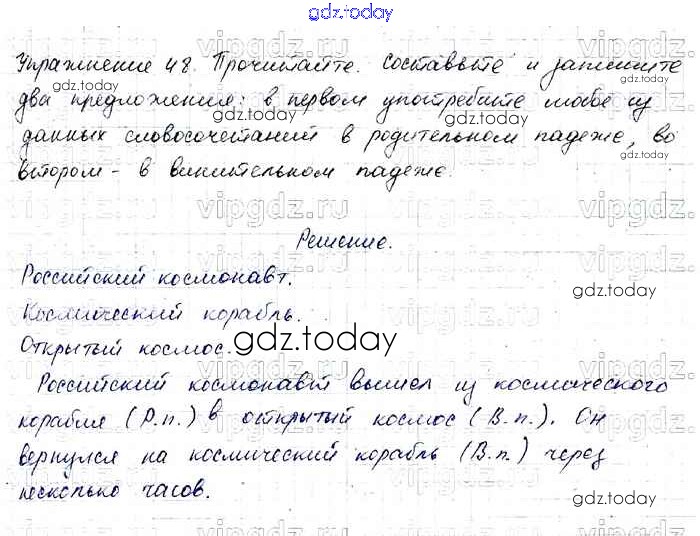 gdz.today
Упражнение 48. Прочитайте. Составьте и запишите
два предложения: в первом употребите любое из
данных словосочетаний в родительном падеже, во
втором - в винительном падеже.
Решение.
Российский космонавт.
Космический корабль.
Открытый космос.
Российский космонавт вышел из космического
корабля (Р.п.) в открытый космос (В.п.). Он
вернулся на космический корабль (В.п.) через
несколько часов.
vipgdz.ru
gdz.today